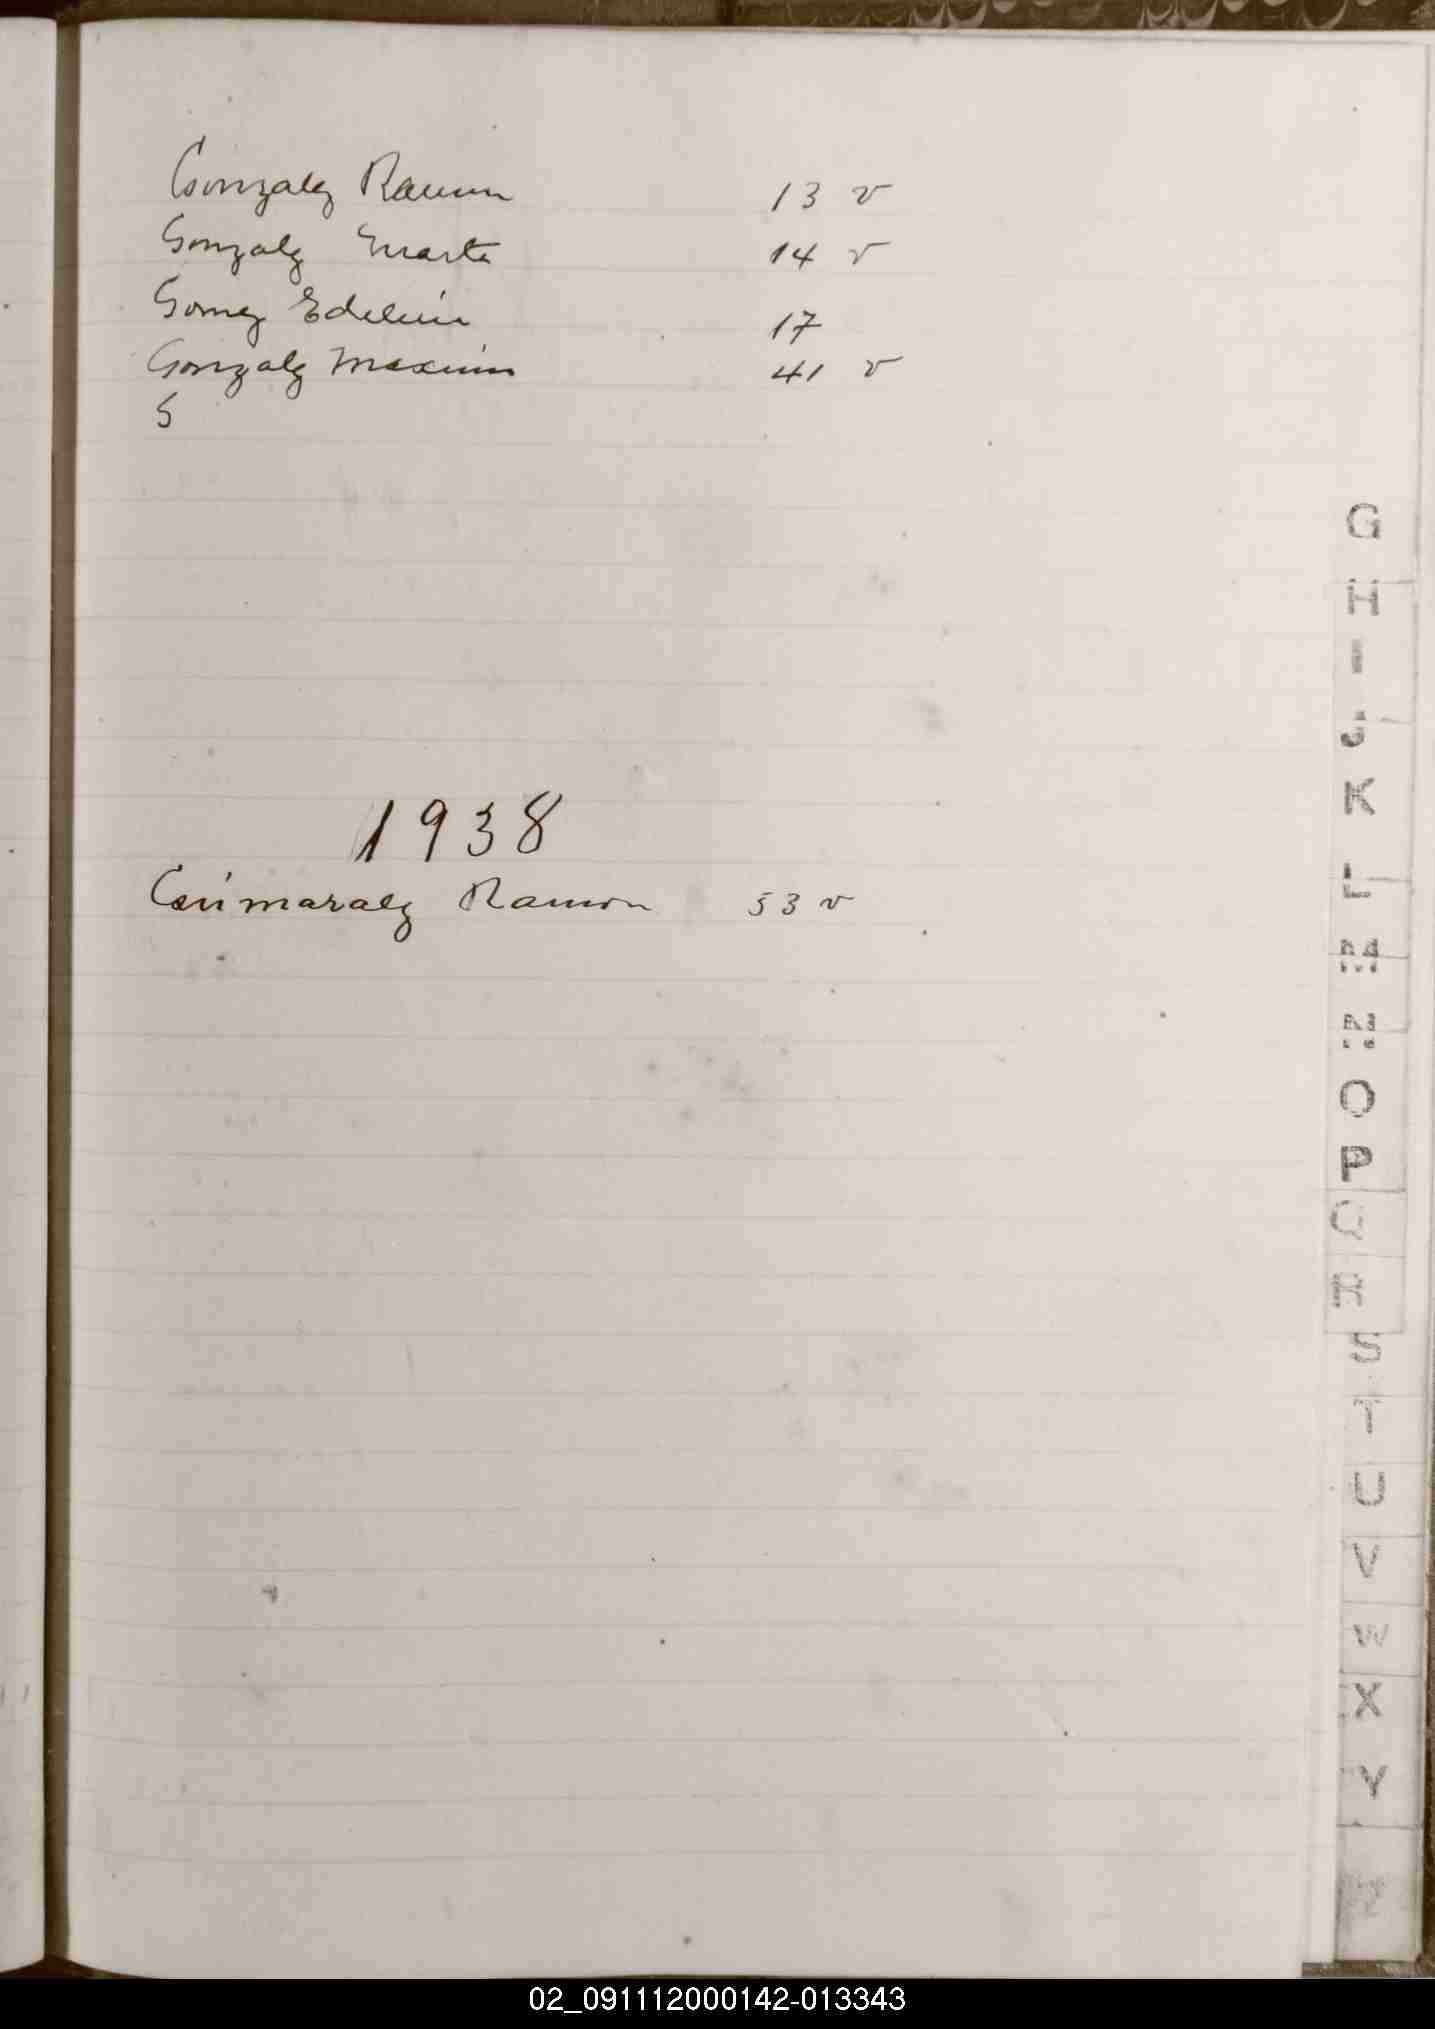 Gonzalez Ramon 13 v
Gonzalez Marta 14 v
Gomez Edelmin 17
Gonzalez Maximin 41 v
G
1938
Guimaraez Ramon 53 v
G
H
I
J
K
L
M
N
O
P
Q
R
S
T
U
V
W
X
Y
Z
02_091112000142-013343